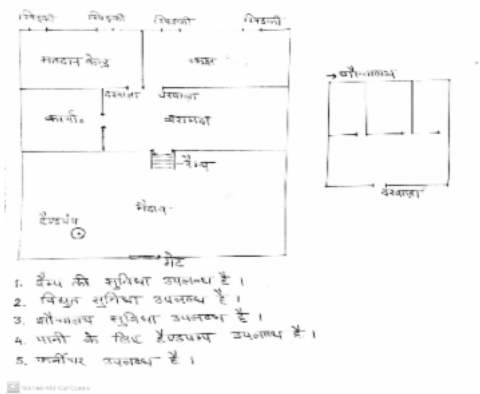 खिड़की खिड़की खिड़की खिड़की
मतदान केन्द्र
कक्ष
→ शौचालय
दरवाजा दरवाजा
कार्या०
बरामदा
रैम्प
दरवाजा
मैदान
हैण्डपंप
गेट
1. रैम्प की सुविधा उपलब्ध है।
2. विद्युत सुविधा उपलब्ध है।
3. शौचालय सुविधा उपलब्ध है।
4. पानी के लिए हैण्डपम्प उपलब्ध है।
5. फर्नीचर उपलब्ध है।
Scanned with CamScanner